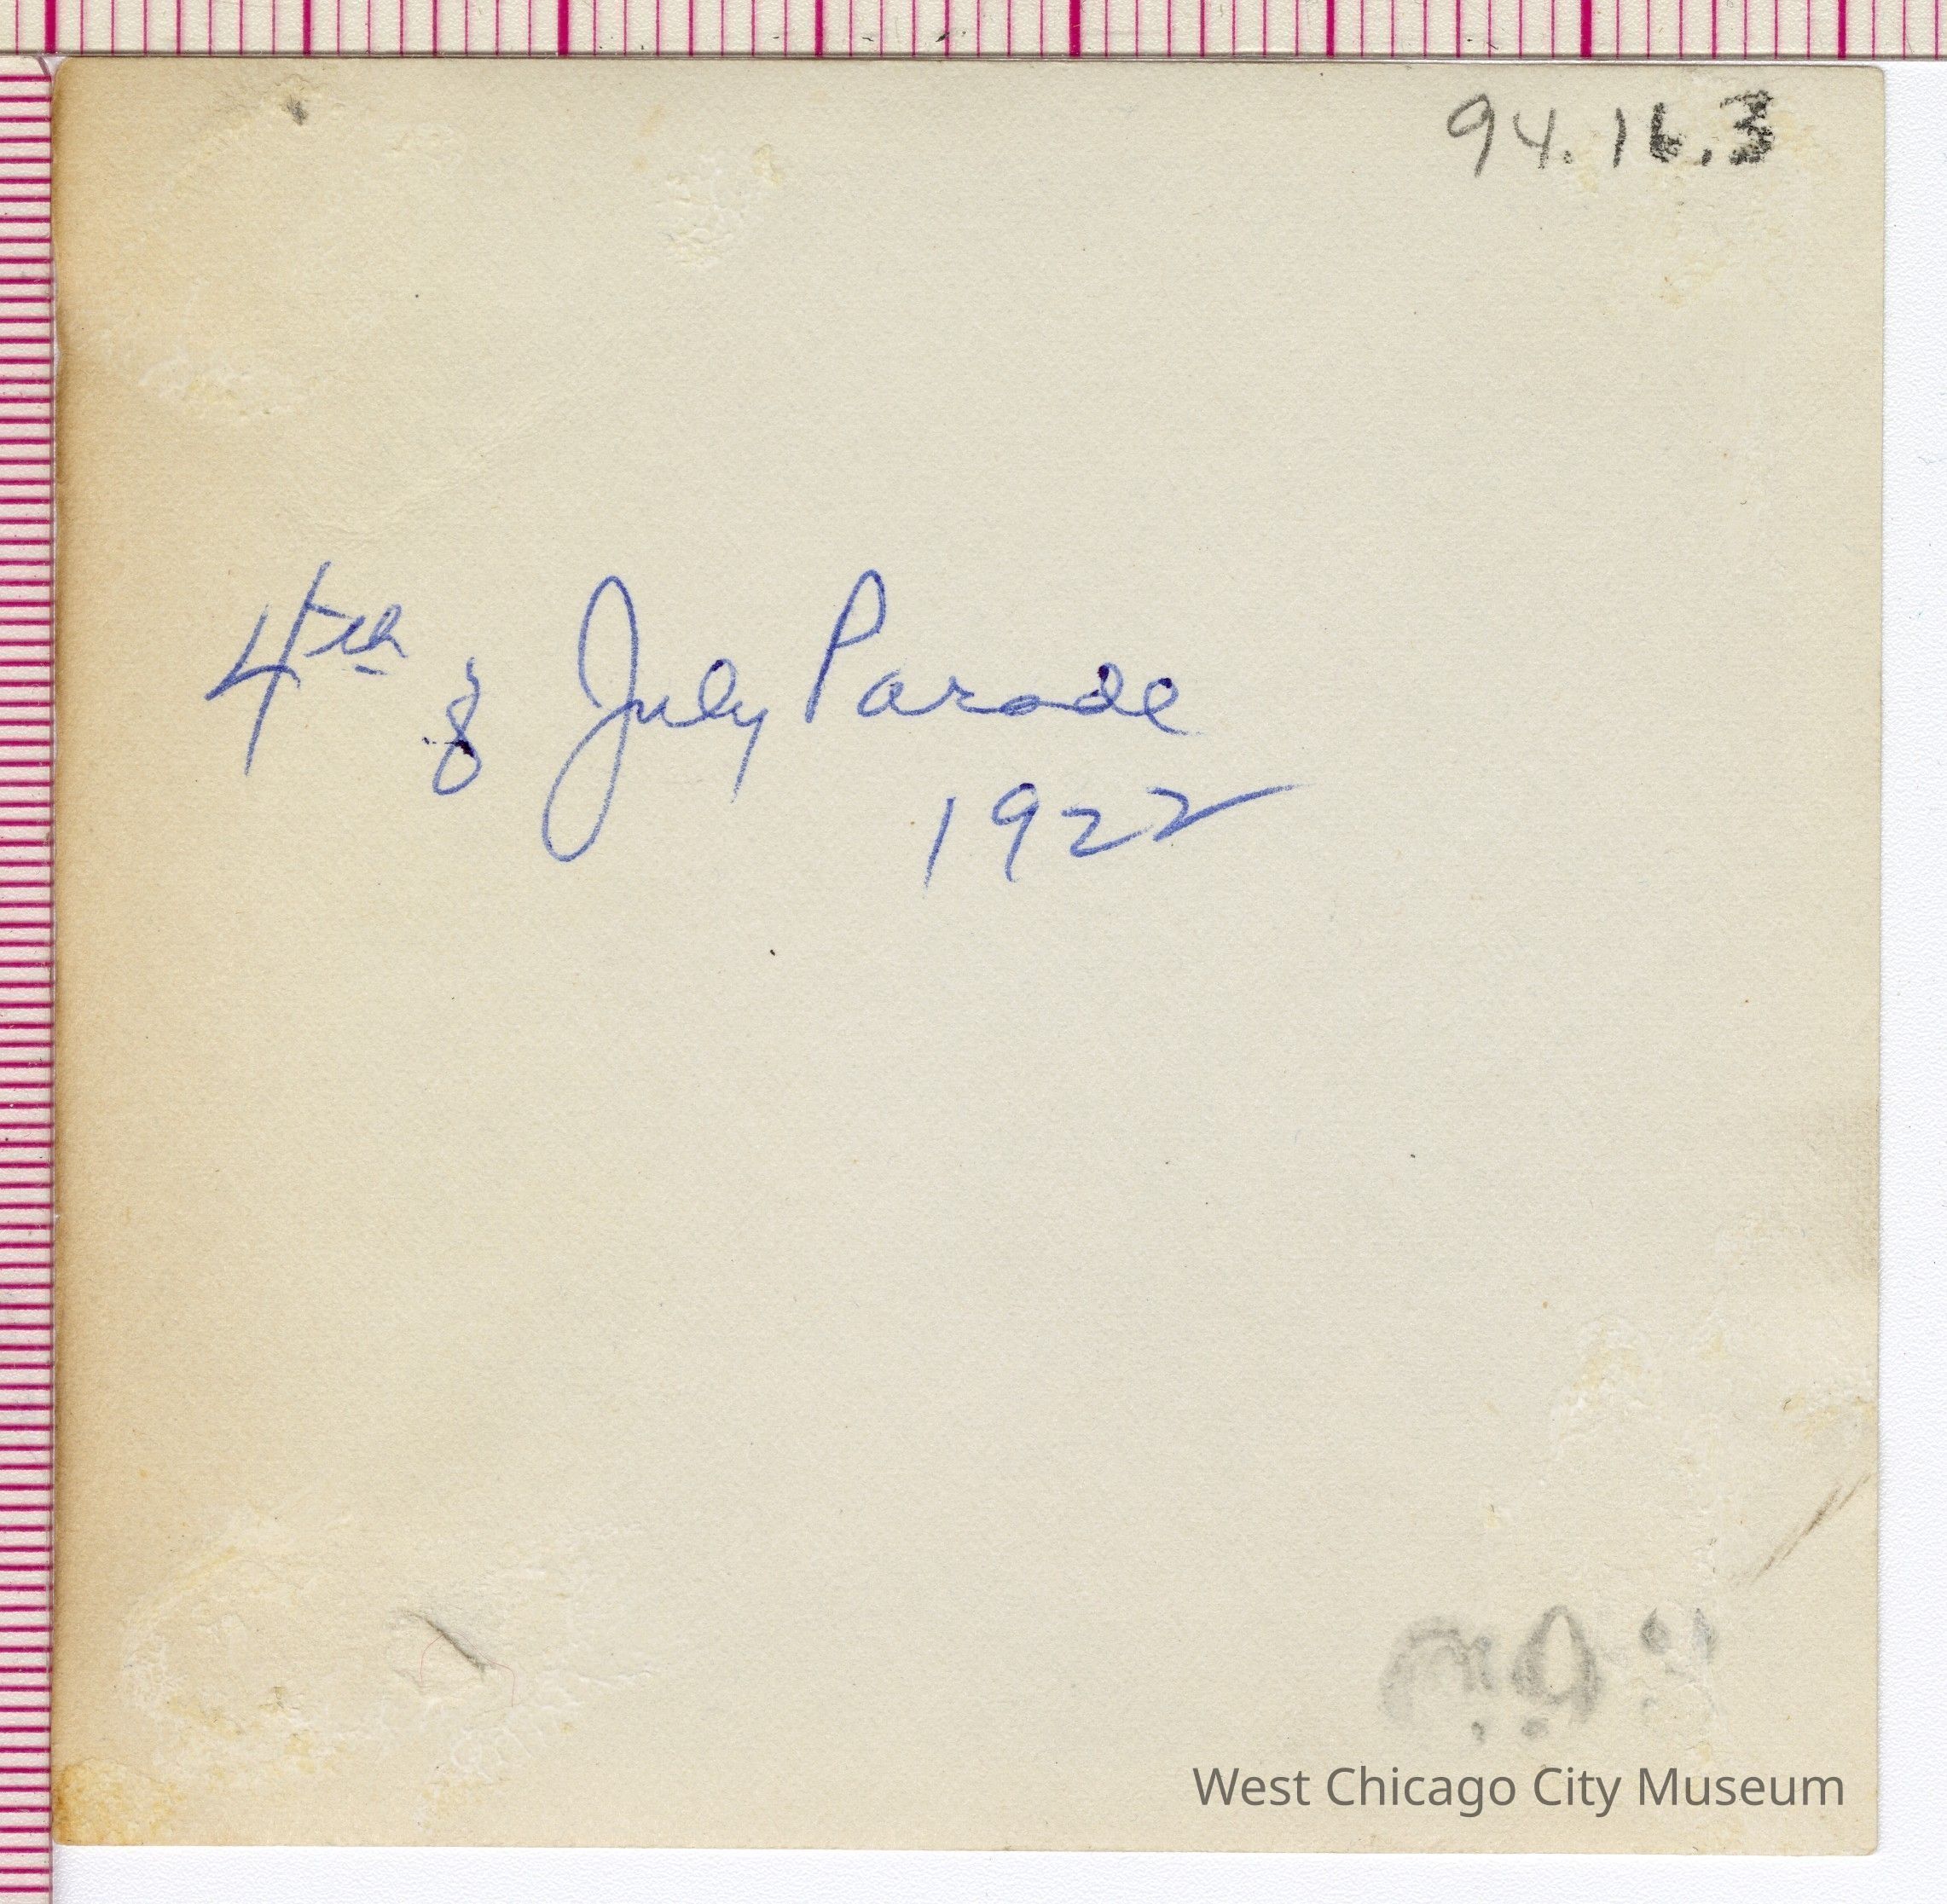 94.16.3
4th of July Parade
1922
West Chicago City Museum